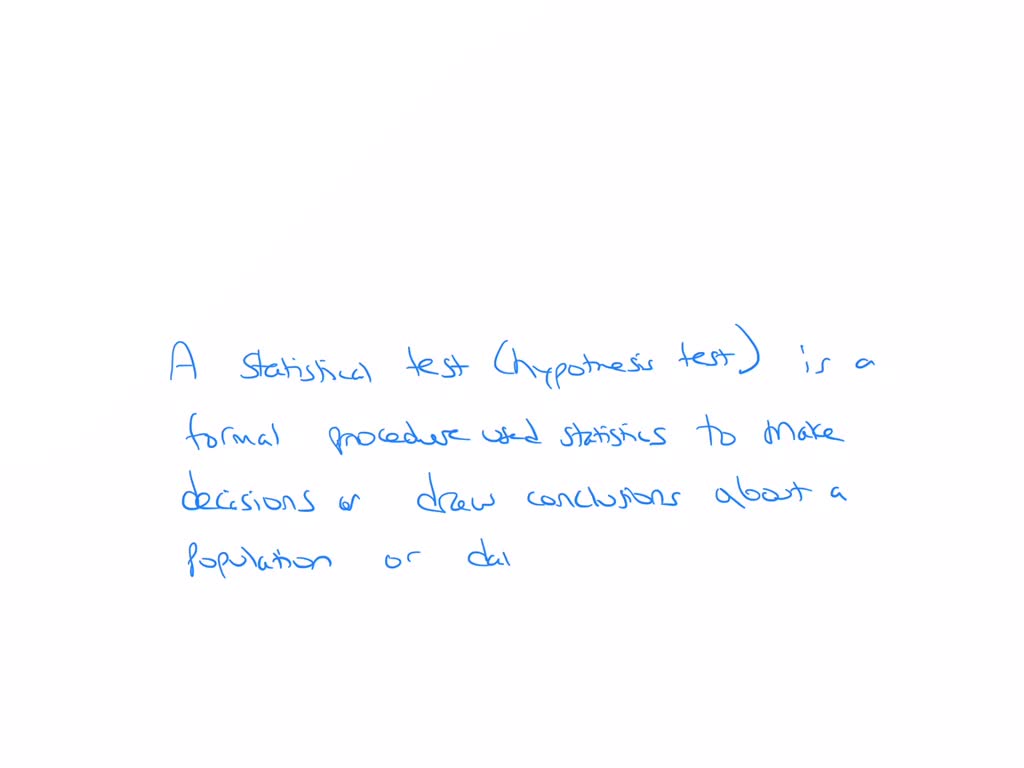 A statistical test (hypothesis test) is a
formal procedure used statistics to make
decisions or draw conclusions about a
population or dat